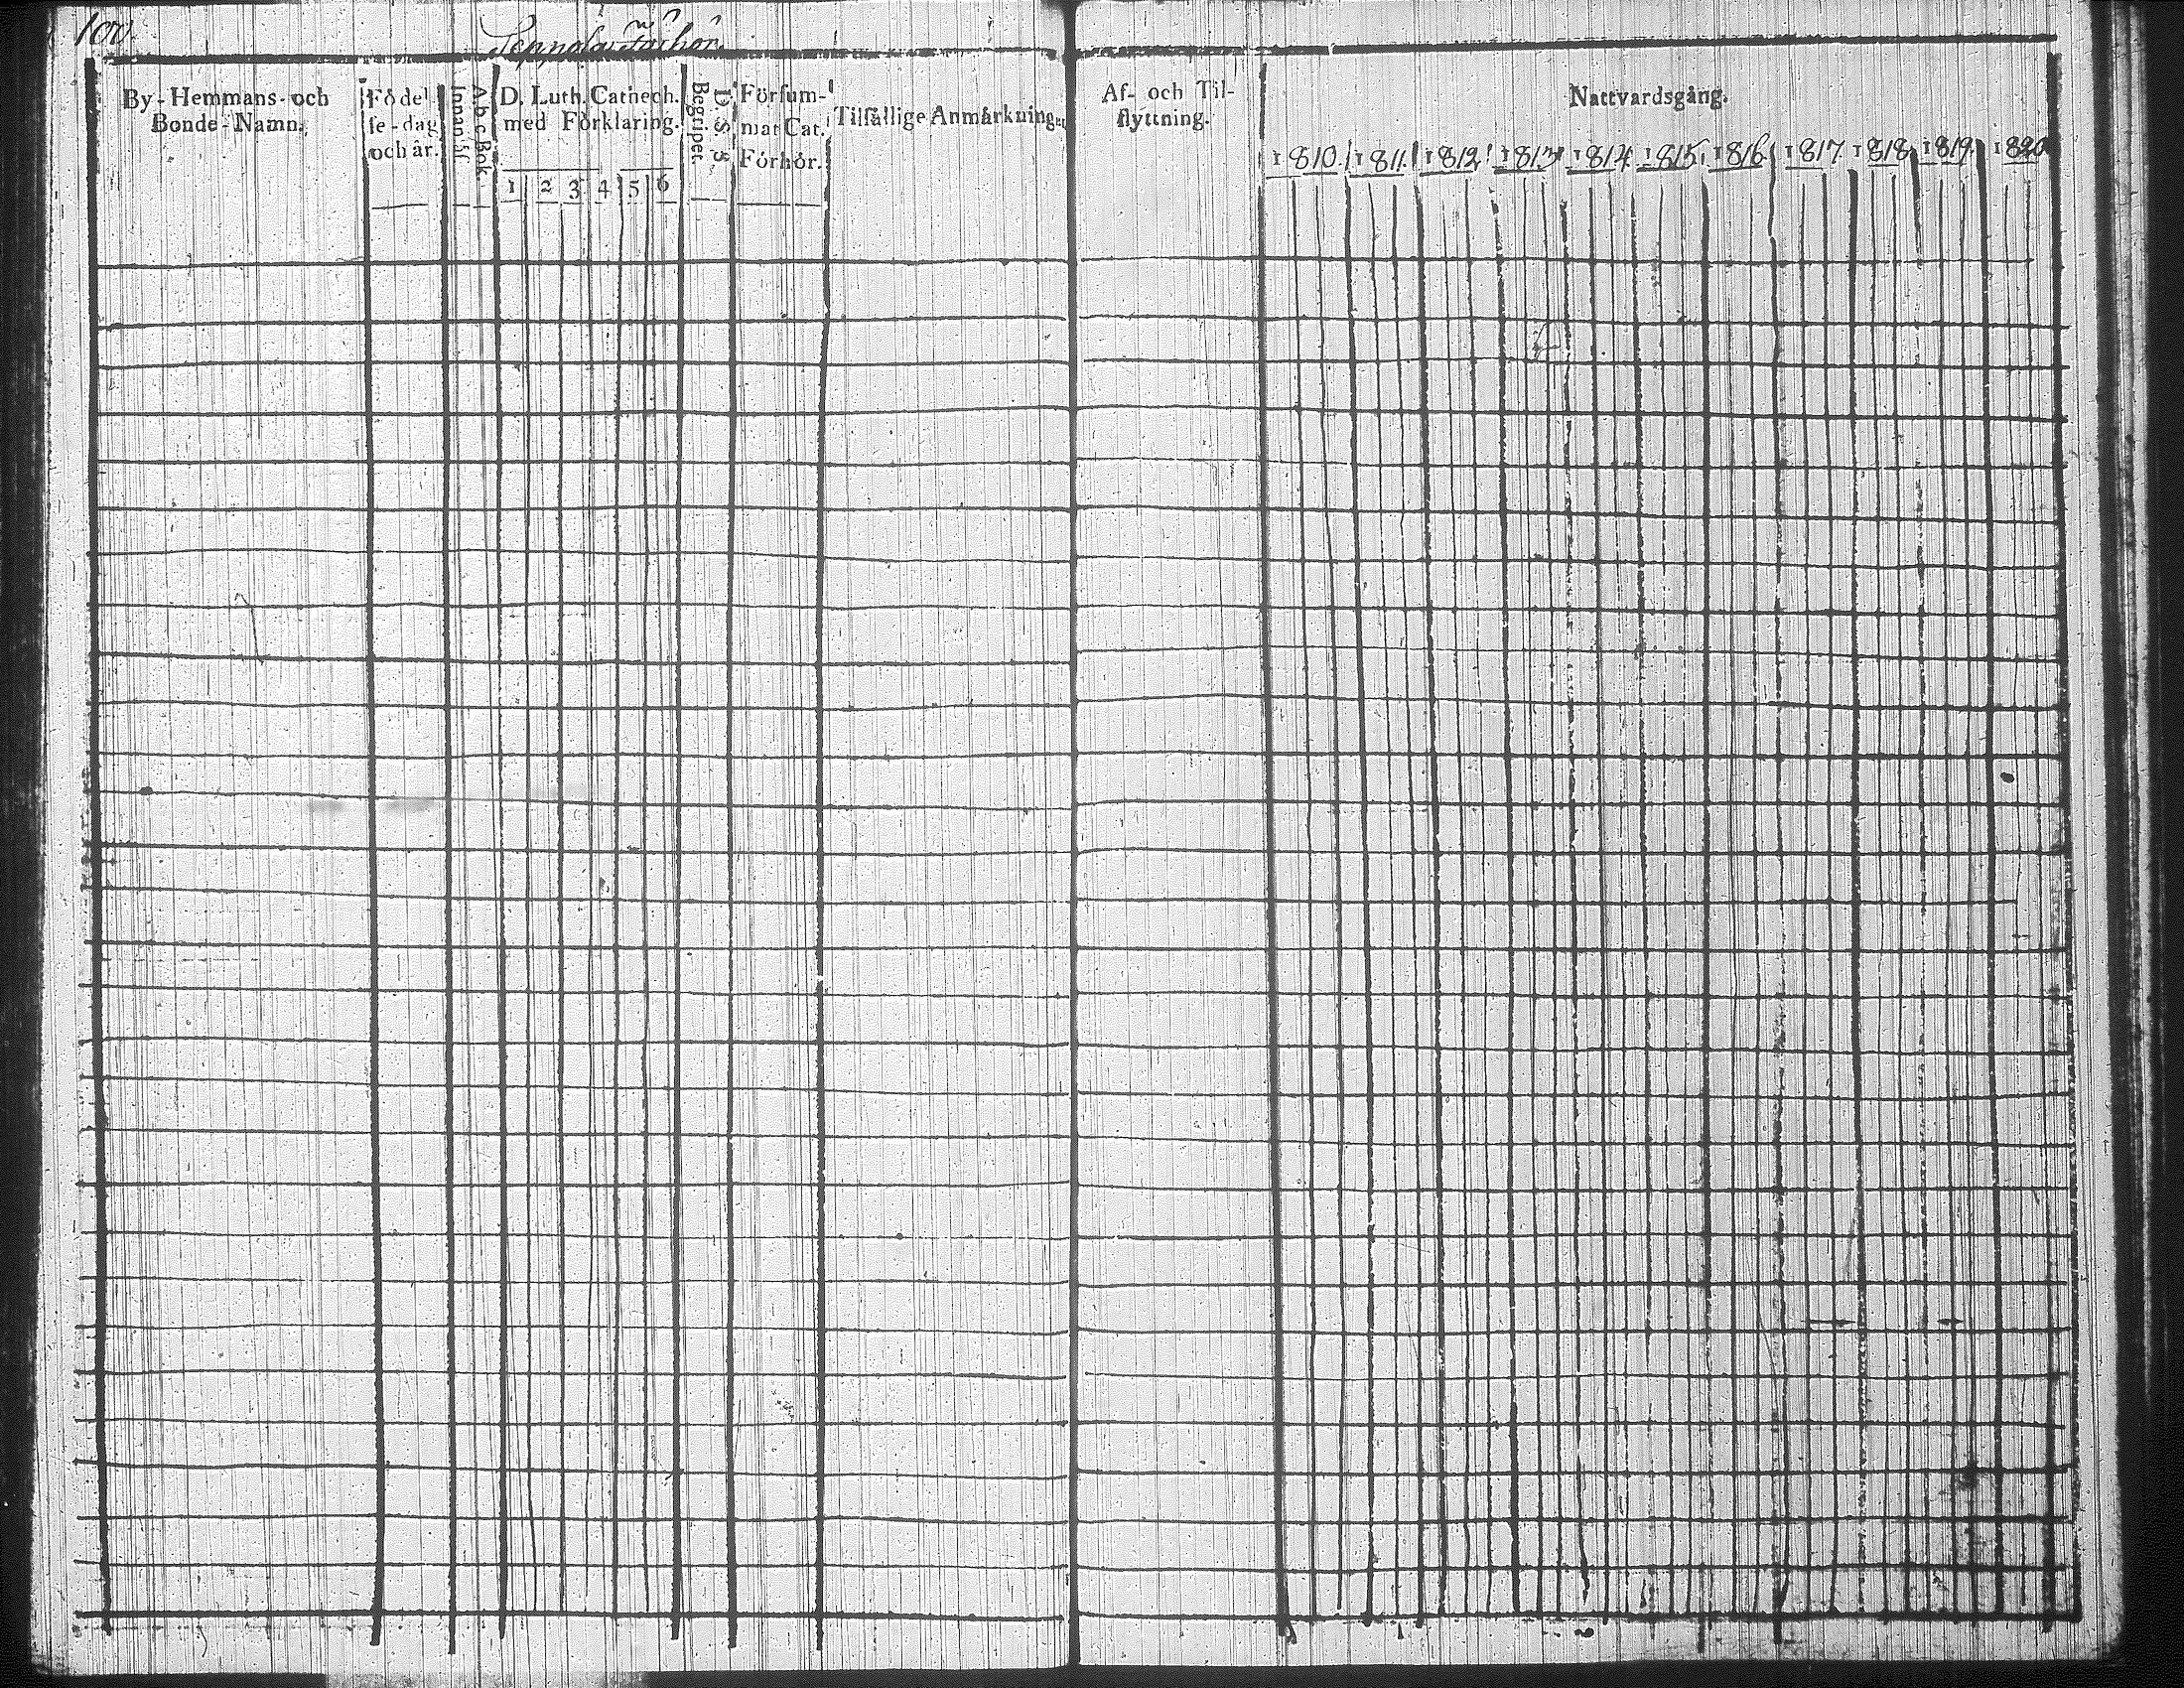 100.
By- Hemmans- och
Bonde- Namn.
Födel-
se-dag
och år.
A. b. c. Bok.
Innanläs.
D. Luth. Cathech.
med Förklaring.
1 2 3 4 5 6
Begriper.
D. S. S.
Försum-
mat Cat.
Förhör.
Tilfällige Anmärkninger
Af- och Til-
flyttning.
Nattvardsgång.
1810. 1811. 1812. 1813. 1814. 1815. 1816. 1817. 1818. 1819. 1820.